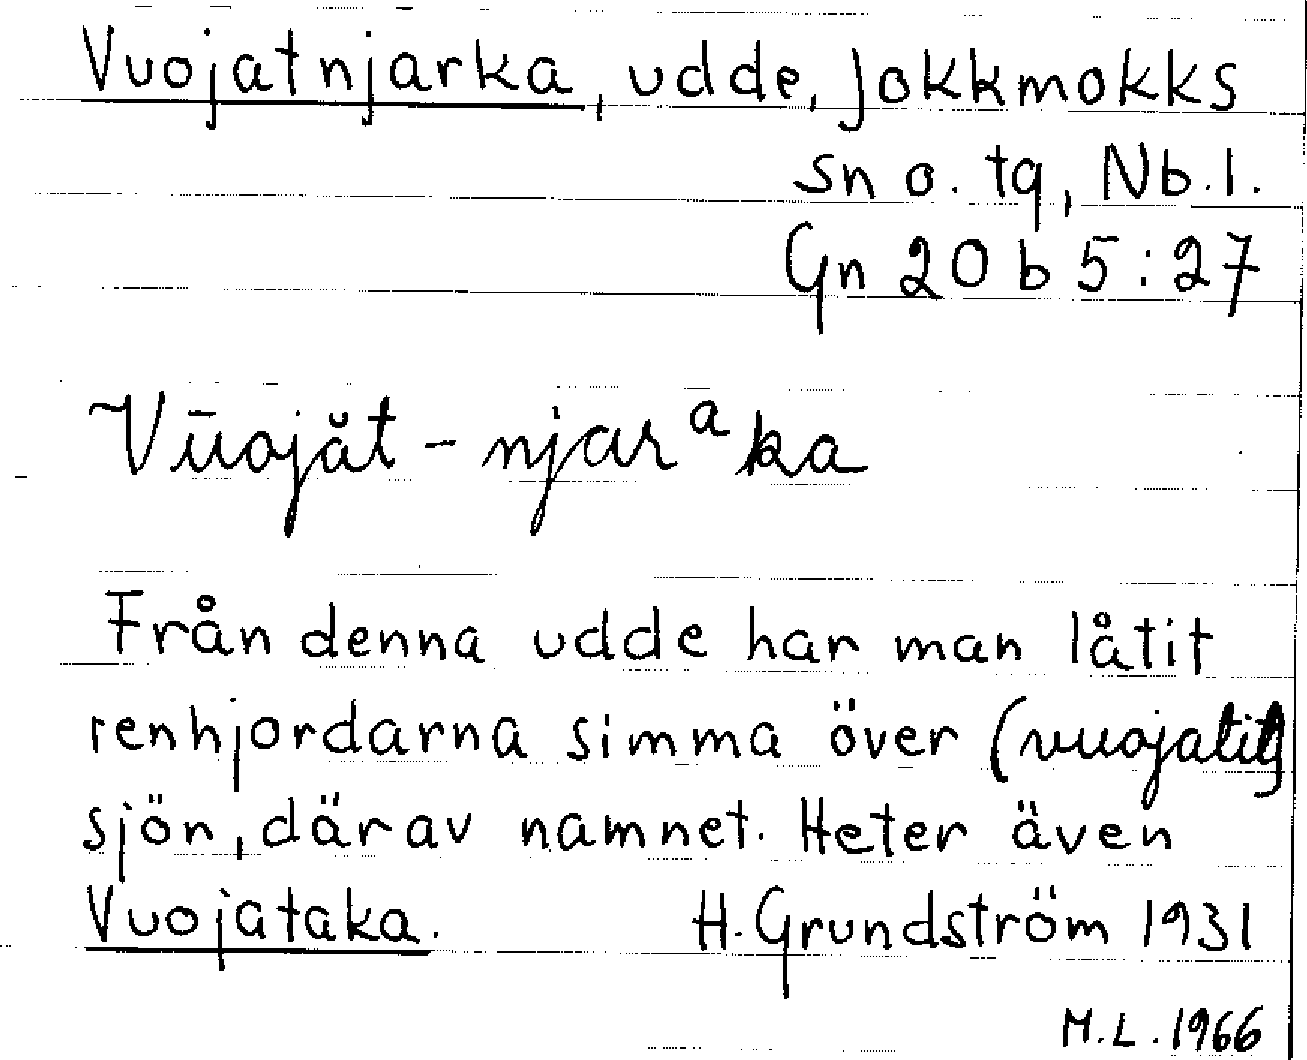 Vuojatnjarka, udde, Jokkmokks
sn o. tg, Nb.l.
Gn 20 b 5:27
Vūojăt-njarᵃka
Från denna udde har man låtit
renhjordarna simma över (vuojatit)
sjön, därav namnet. Heter även
Vuojataka. H. Grundström 1931
M.L. 1966